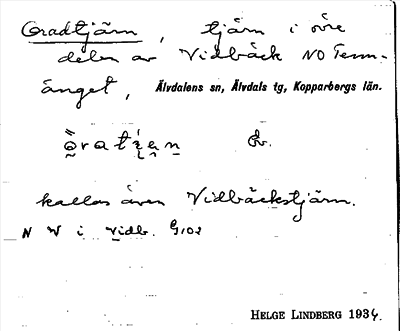 Oradtjärn, tjärn i övre
delen av Vidbäck NO Tenn-
änget, Älvdalens sn, Älvdals tg, Kopparbergs län.
kallas även Vidbäckstjärn.
N V i Vidb. G102
HELGE LINDBERG 1934.